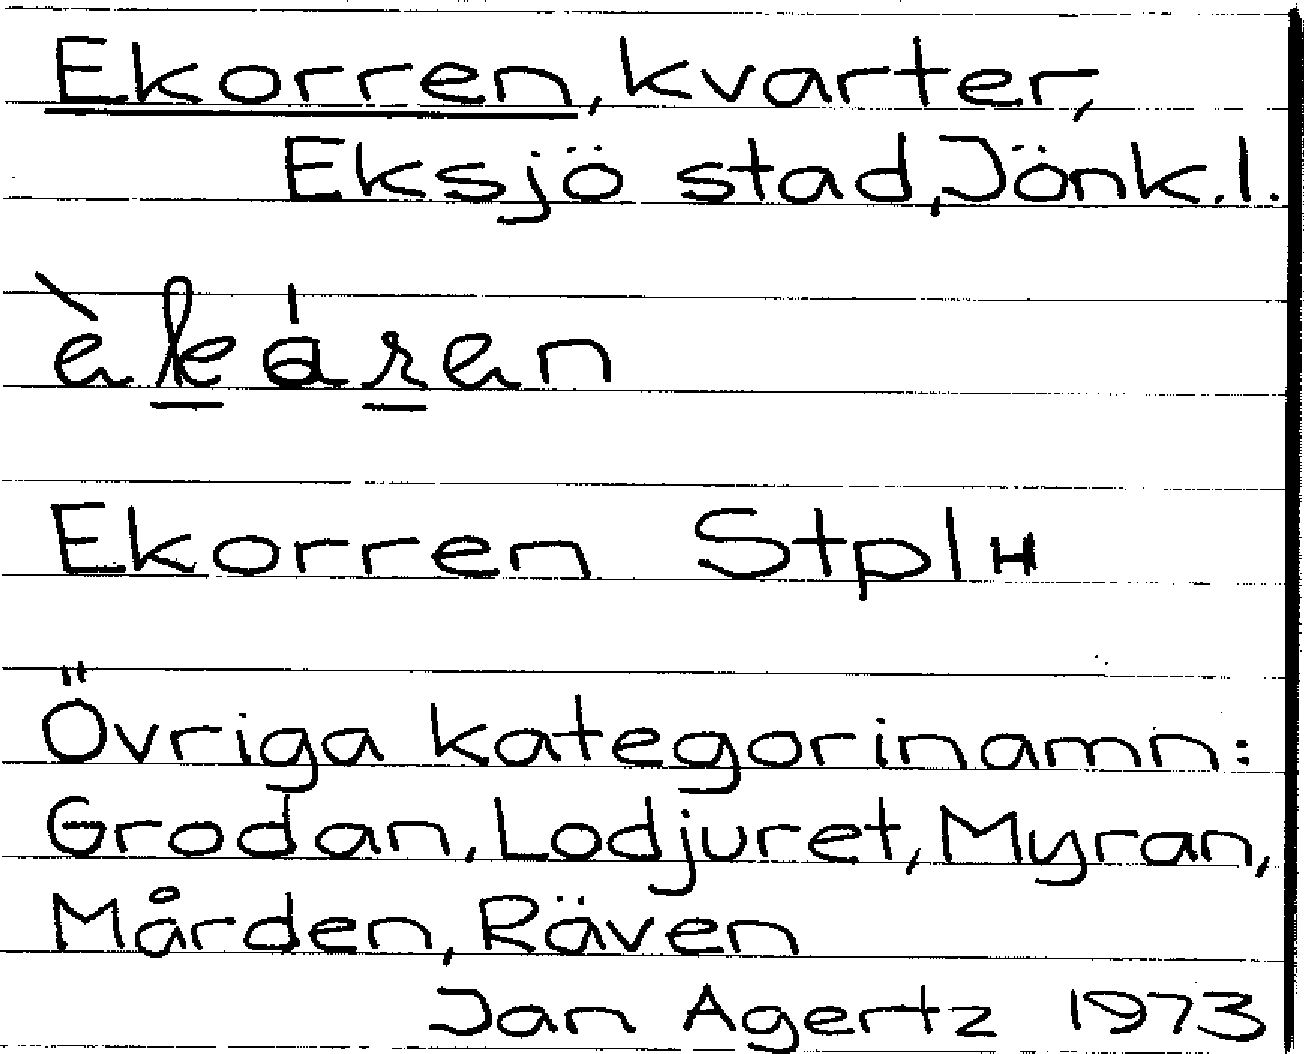 Ekorren, kvarter,
Eksjö stad, Jönk. l.
èkáren
Ekorren Stpl H
Övriga kategorinamn:
Grodan, Lodjuret, Myran,
Mården, Räven
Jan Agertz 1973